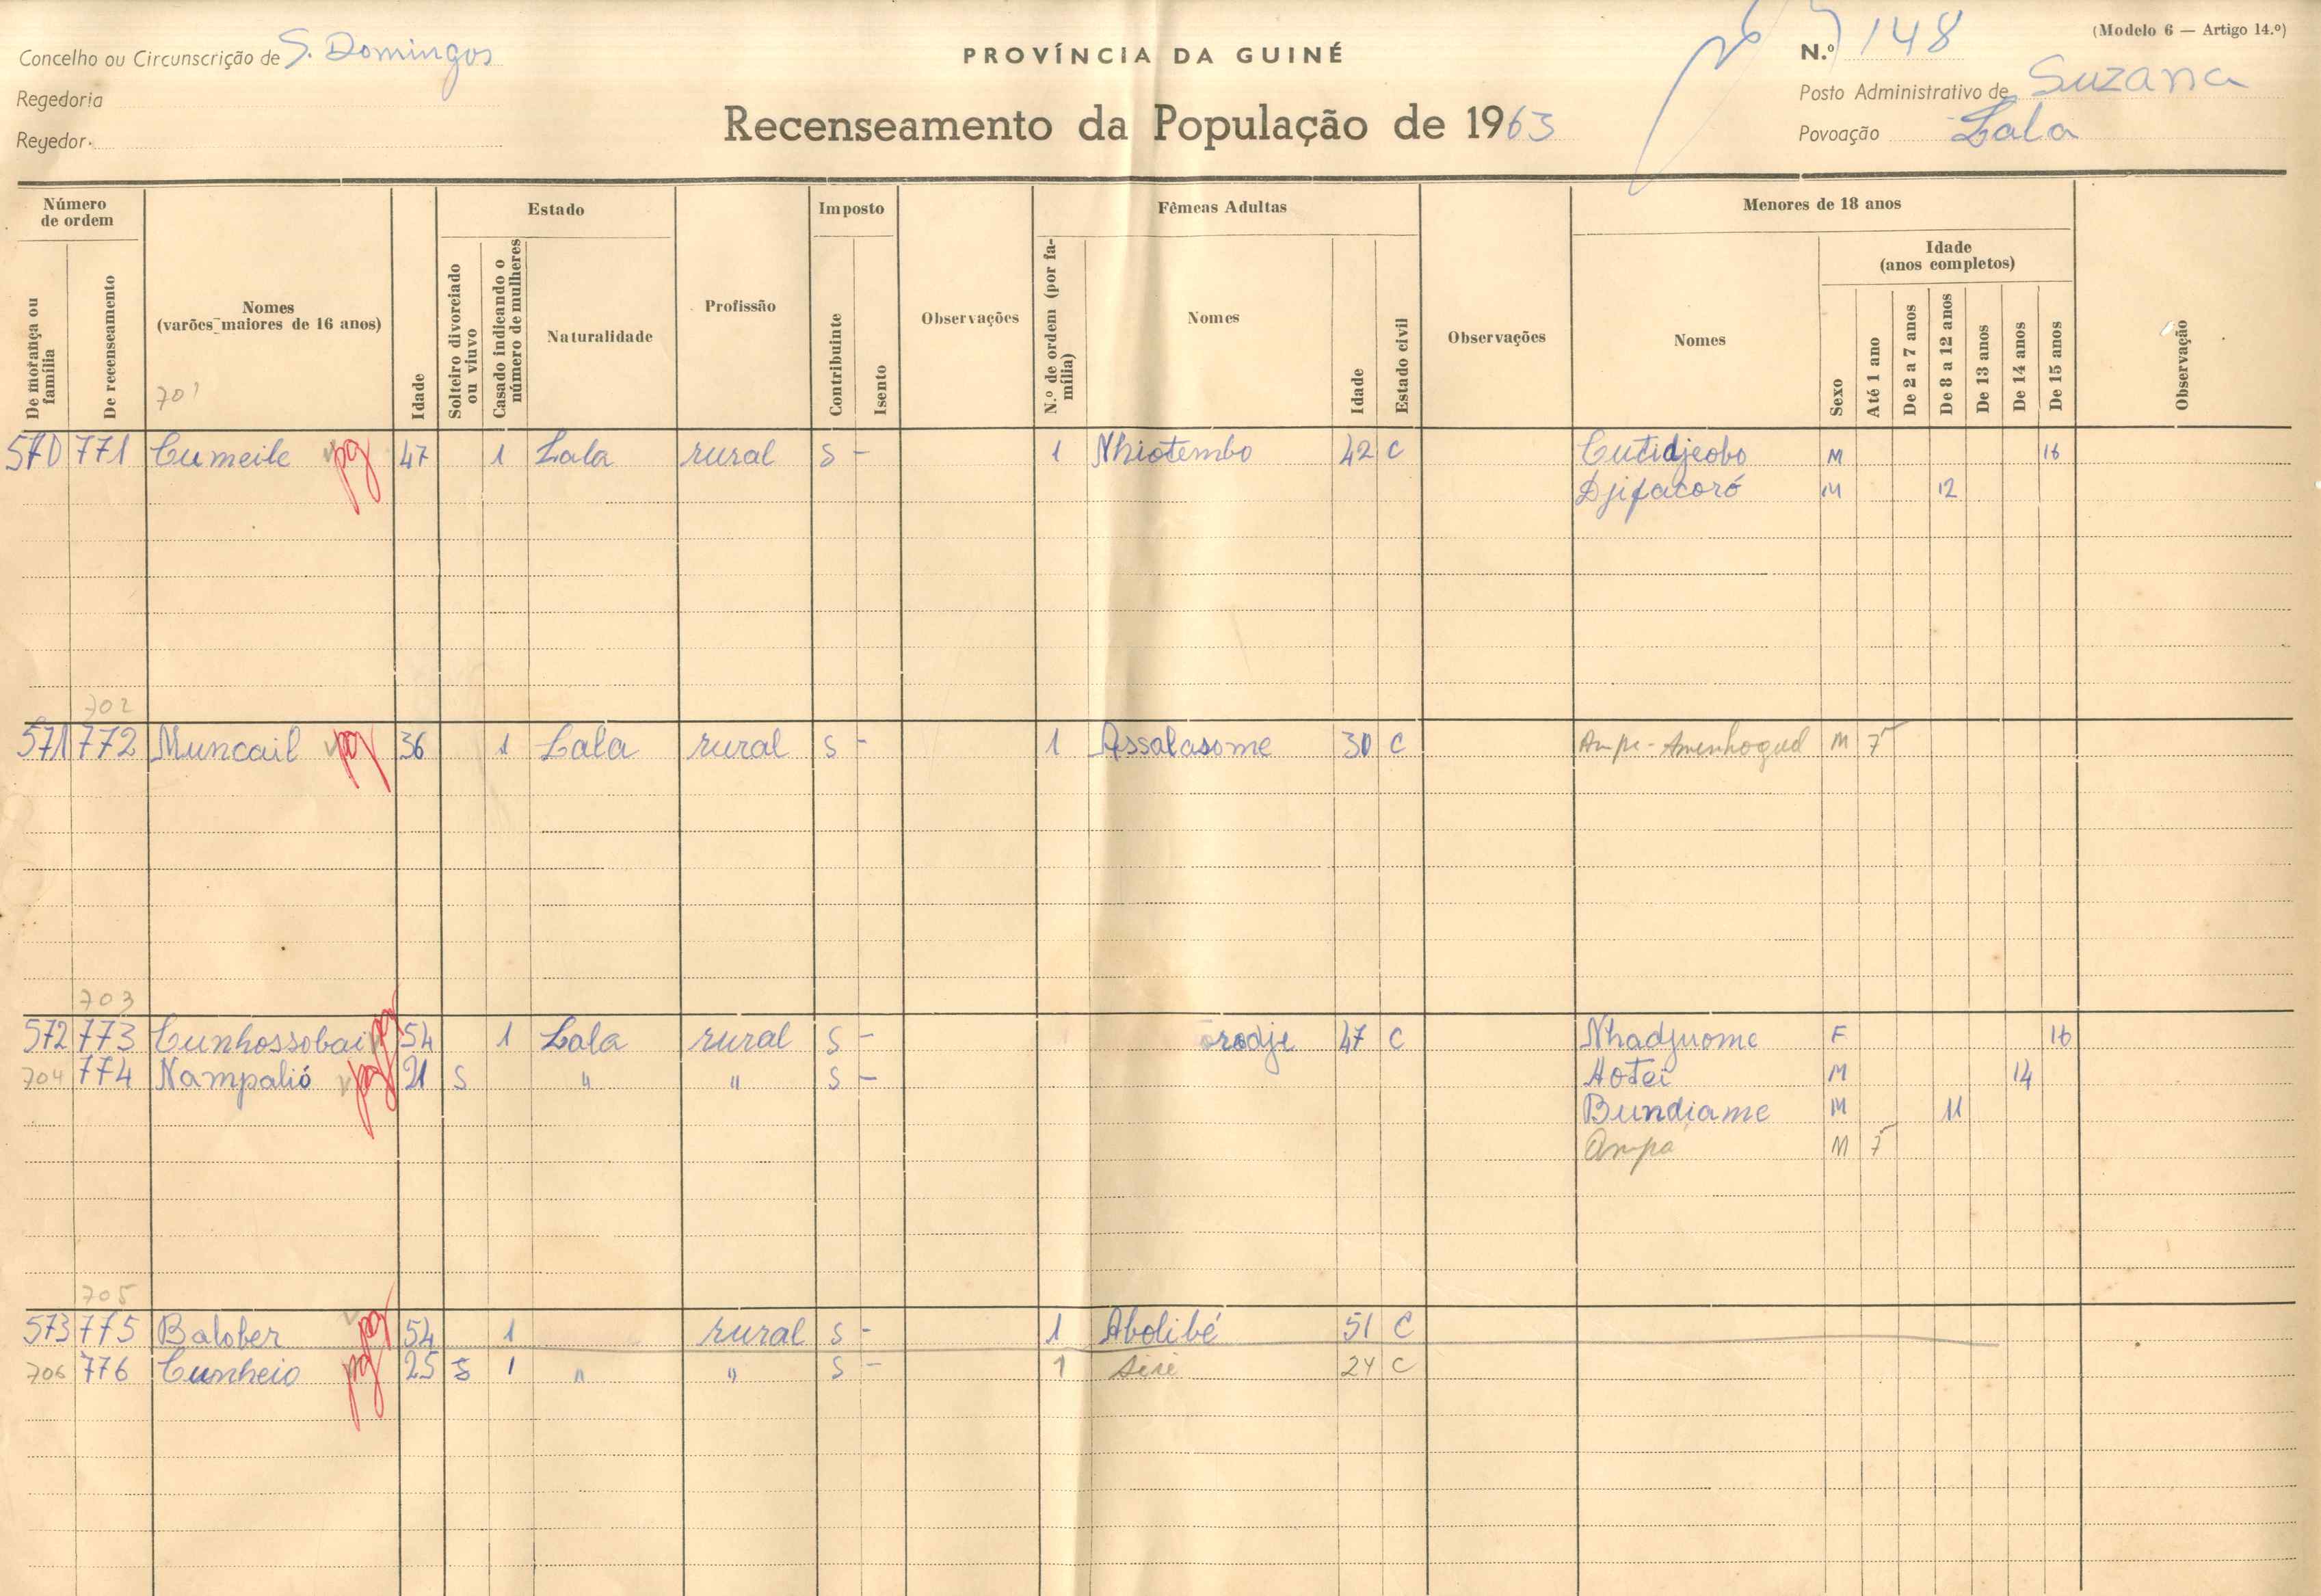 Concelho ou Circunscrição de S. Domingos
Regedoria
Regedor
PROVÍNCIA DA GUINÉ
Recenseamento da População de 1963
(Modelo 6 — Artigo 14.º)
N.º 148
Posto Administrativo de Suzana
Povoação Lala
Número de ordem
De morança ou família
De recenseamento
Nomes
(varões maiores de 16 anos)
701
Idade
Estado
Solteiro divorciado ou viuvo
Casado indicando o número de mulheres
Naturalidade
Profissão
Imposto
Contribuinte
Isento
Observações
N.º de ordem (por família)
Fêmeas Adultas
Nomes
Idade
Estado civil
Observações
Menores de 18 anos
Nomes
Sexo
Idade
(anos completos)
Até 1 ano
De 2 a 7 anos
De 8 a 12 anos
De 13 anos
De 14 anos
De 15 anos
Observação
570 771 Cumeile pg 47 1 Lala rural S - 1 Nhiotembo 42 C Cutidjeobo M 16
Djifacoró M 12
702
571 772 Muncail pg 36 1 Lala rural S - 1 Assalasome 30 C M
703
572 773 Cunhossobai pg 54 1 Lala rural S - rodje 47 C Nhadjuome F 16
704 774 Nampalió pg 21 S " " S - Hotei M 14
Bundiame M 11
Ampa M
705
573 775 Balober pg 54 1 rural S - 1 Abolibé 51 C
706 776 Cunheio pg 25 S 1 " " S - 1 24 C